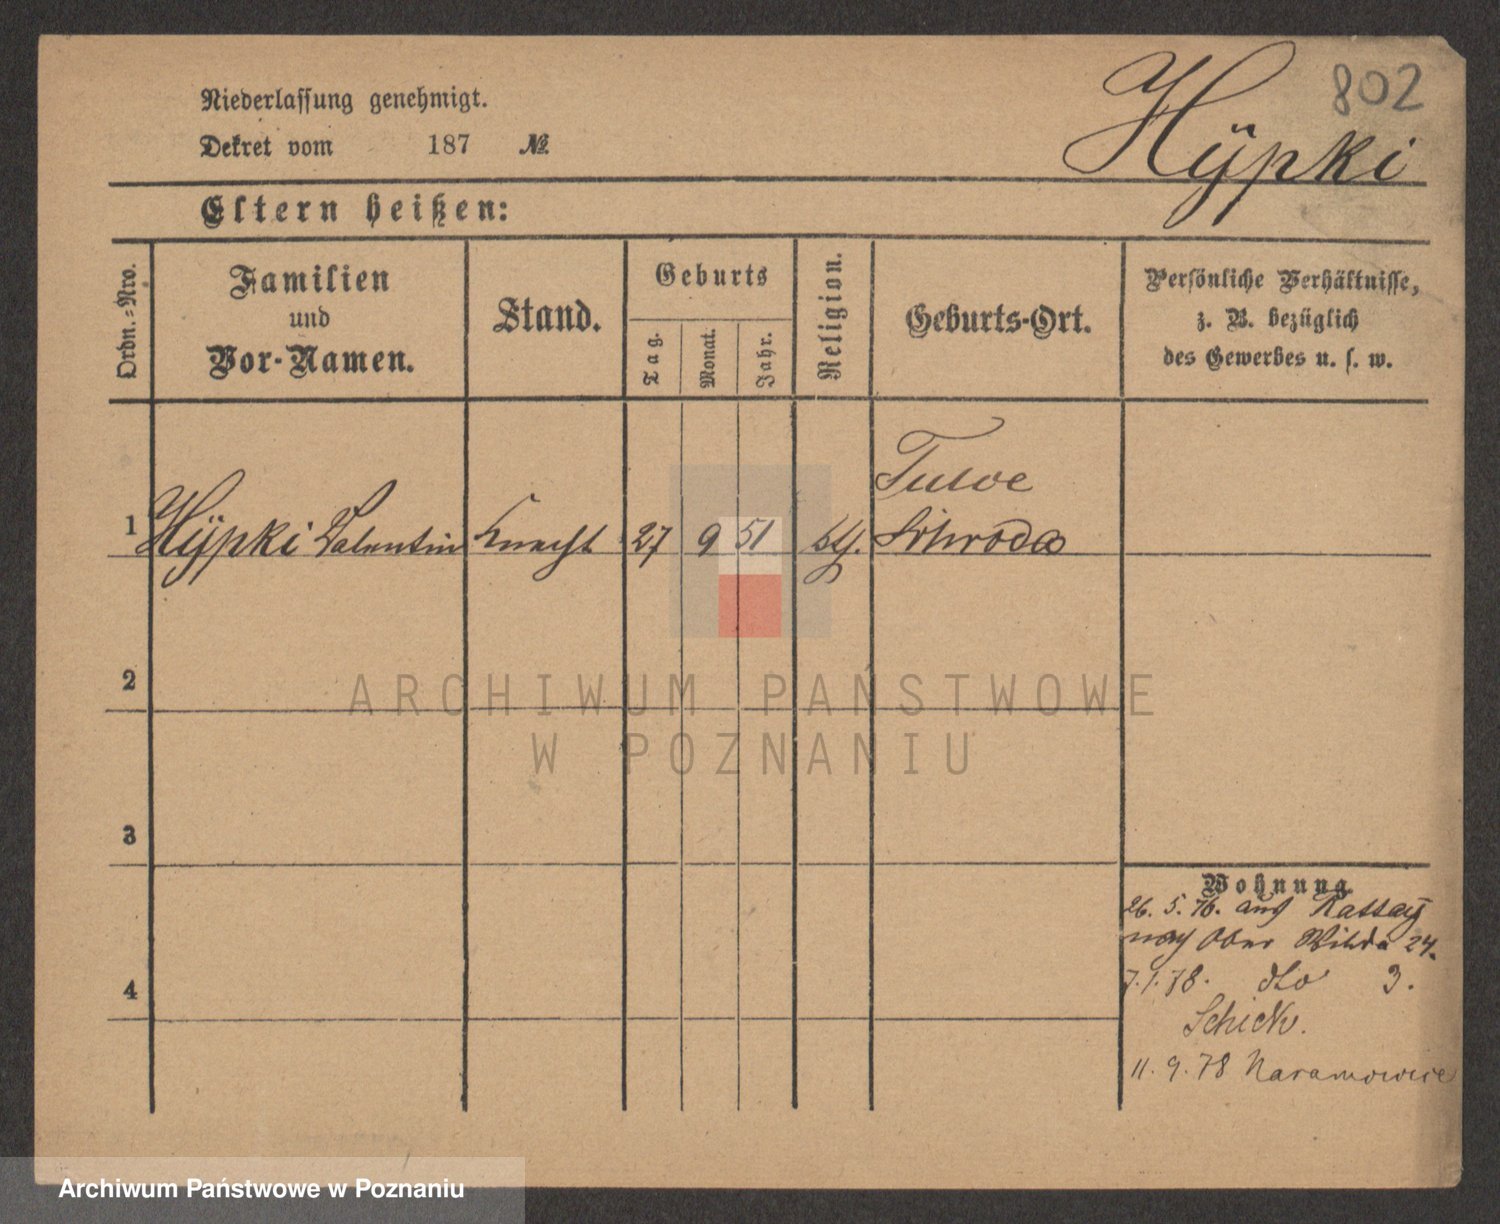 802
Hÿpki
Niederlassung genehmigt.
Dekret vom 187 №
Eltern heißen:
Ordn.-Nro.
Familien
und
Vor-Namen.
Stand.
Geburts
Tag.
Monat.
Jahr.
Religion.
Geburts-Ort.
Persönliche Verhältnisse,
z. B. bezüglich
des Gewerbes u. s. w.
Tulce
1 Hÿpki Valentin Knecht 27 9 51 kth. Schroda
2
3
4
Wohnung
26. 5. 76. aus Rattay
nach Ober Wilda 24.
7. 1. 78. dto 3.
Schick.
11. 9. 78 Naramowice
ARCHIWUM PAŃSTWOWE
W POZNANIU
Archiwum Państwowe w Poznaniu